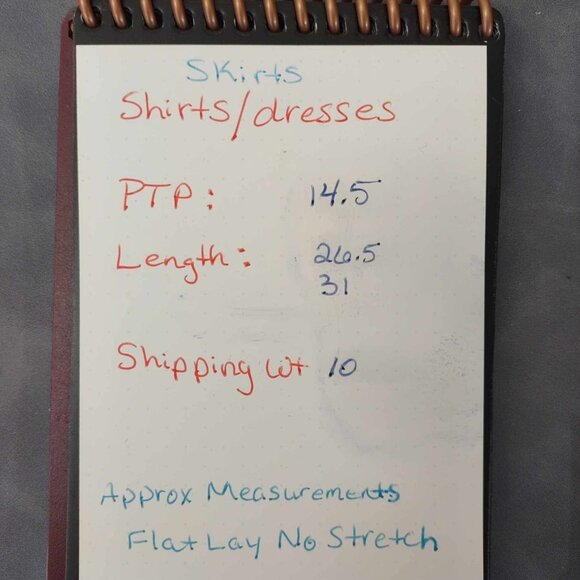 Skirts
Shirts/dresses
PTP: 14.5
Length: 26.5
31
Shipping Wt 10
Approx Measurements
Flat Lay No Stretch